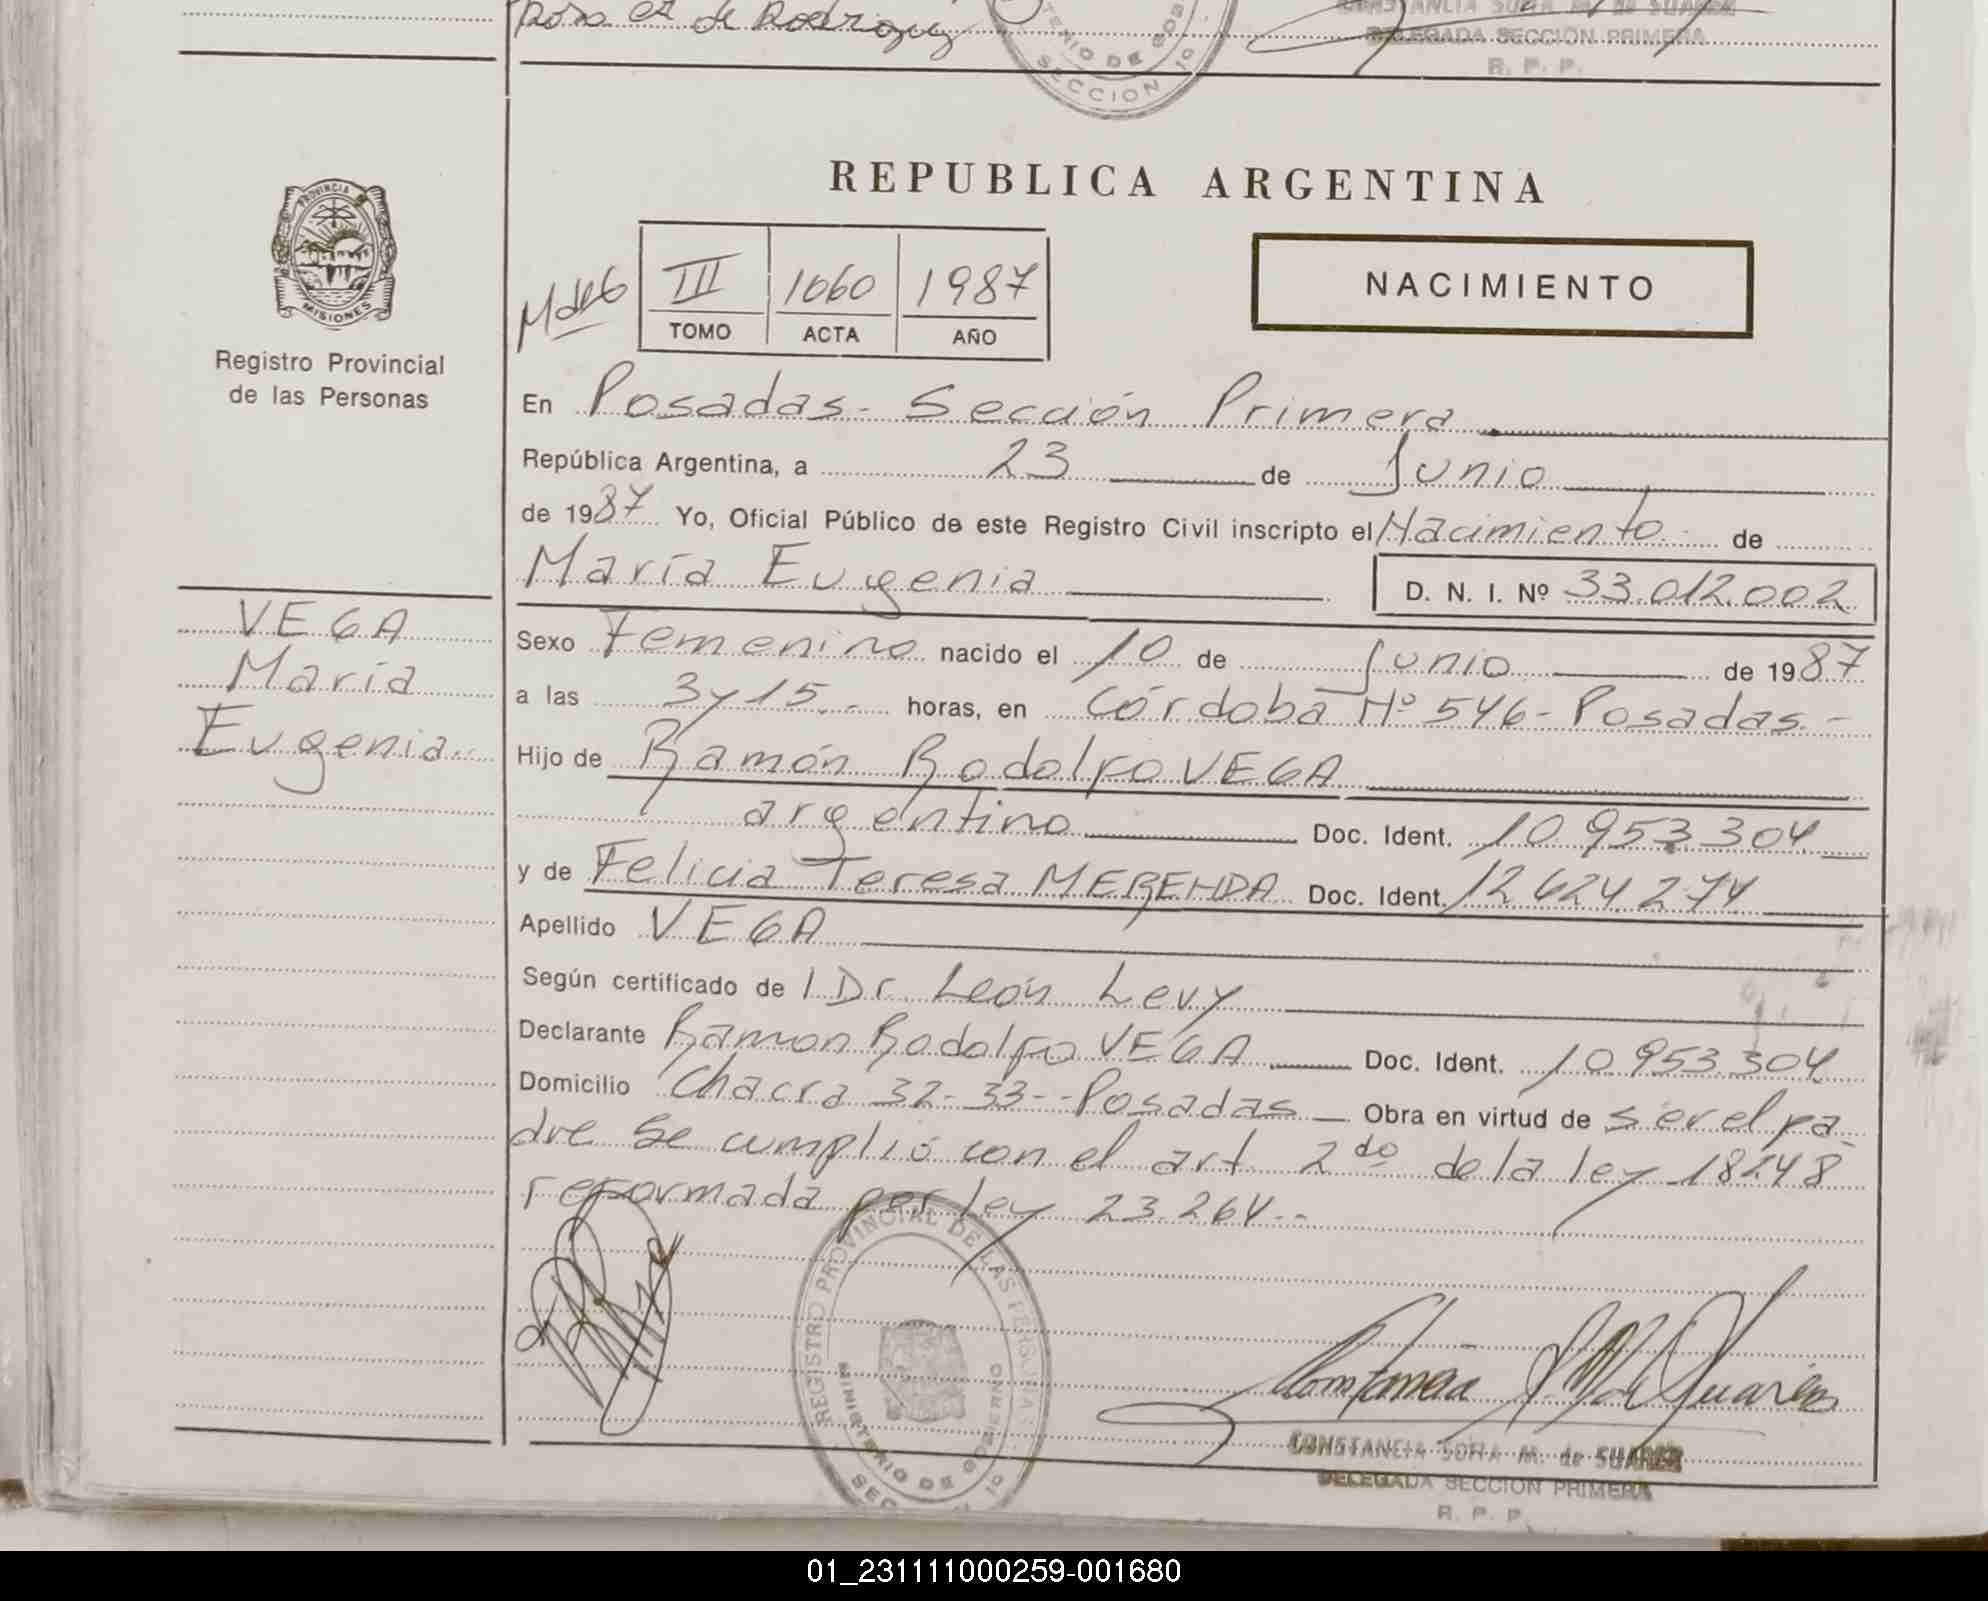 Rosa A. de Rodriguez
TERIO DE GOB
SECCION 1º
CONSTANCIA SOFIA M. de SUAREZ
DELEGADA SECCION PRIMERA
R. P. P.
REPUBLICA ARGENTINA
PROVINCIA
MISIONES
Registro Provincial
de las Personas
III 1060 1987
TOMO ACTA AÑO
NACIMIENTO
En Posadas - Sección Primera
República Argentina, a 23 de Junio
de 1987 Yo, Oficial Público de este Registro Civil inscripto el Nacimiento de
María Eugenia D. N. I. Nº 33.012.002
VEGA
María
Eugenia
Sexo Femenino nacido el 10 de Junio de 1987
a las 3 y 15.- horas, en Córdoba Nº 546 - Posadas.-
Hijo de Ramón Rodolfo VEGA
argentino Doc. Ident. 10.953.304
y de Felicia Teresa MERENDA Doc. Ident. 12.624.274
Apellido VEGA
Según certificado de l Dr. León Levy
Declarante Ramon Rodolfo VEGA Doc. Ident. 10.953.304
Domicilio Chacra 32-33--Posadas Obra en virtud de ser el pa-
dre Se cumplió con el art. 2do de la ley 18248
reformada por ley 23.264.-
REGISTRO PROVINCIAL DE LAS PERSONAS
MINISTERIO DE GOBIERNO
Constancia S. M. de Suarez
CONSTANCIA SOFIA M. de SUAREZ
DELEGADA SECCION PRIMERA
R. P. P.
01_231111000259-001680